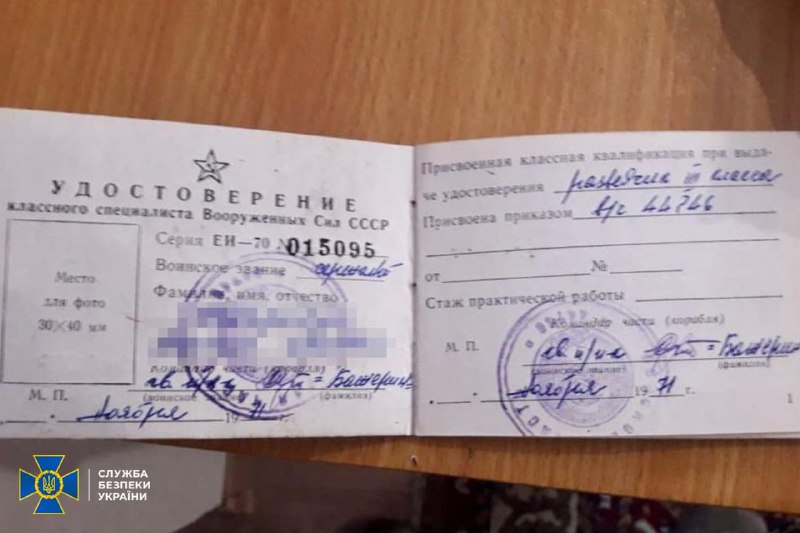 УДОСТОВЕРЕНИЕ
классного специалиста Вооруженных Сил СССР
Серия ЕИ—70 № 015095
Воинское звание
Фамилия, имя, отчество
Место
для фото
30×40 мм
Командир части (корабля)
(воинское звание) (фамилия)
М. П.
ноября 1971 г.
Присвоенная классная квалификация при выда-
че удостоверения разведчик III класса
Присвоена приказом в/ч 44746
от №
Стаж практической работы
Командир части (корабля)
М. П.
гв п/п-к
(воинское звание) (фамилия)
ноября 1971 г.
1
СЛУЖБА
БЕЗПЕКИ
УКРАЇНИ